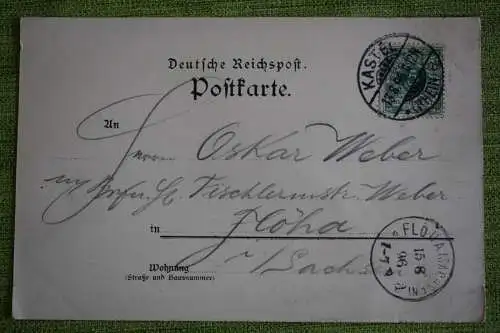 Deutsche Reichspost.
Postkarte.
KASTEL
An
Herrn Oskar Weber
Tischlermstr. Weber
in Flöha
i/Sachs
Wohnung
(Straße und Hausnummer)
FLÖHA
15 8
96